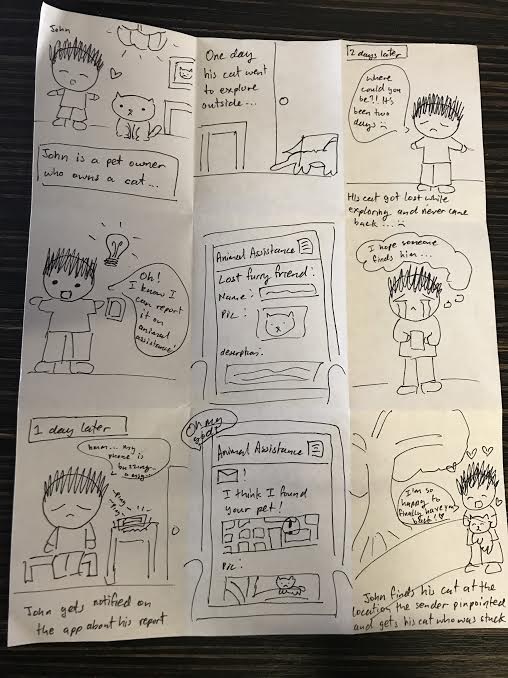 John
John is a pet owner
who owns a cat...
One day
his cat went
to explore
outside...
2 days later
where
could you
be?!! It's
been two
days :(
His cat got lost while
exploring and never came
back... :(
Oh!
I know I
can report
it on
animal
assistance!
Animal Assistance
Lost furry friend:
Name:
Pic:
description:
I hope someone
finds him...
1 day later
hmm... my
phone is
buzzing
John gets notified on
the app about his report
Oh my
gosh!
Animal Assistance
!
I think I found
your pet!
Pic:
I'm so
happy to
finally have you
back!
John finds his cat at the
location the sender pinpointed
and gets his cat who was stuck